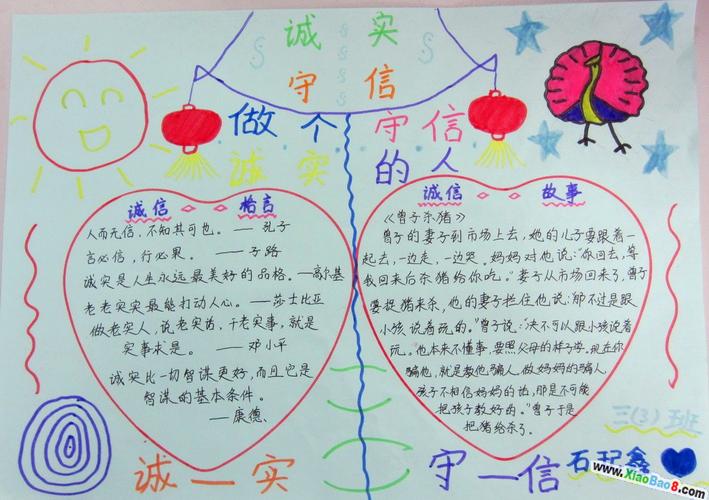 诚 实
守 信
做个 守信
诚实 的人
诚信 格言
人而无信，不知其可也。 —— 孔子
言必信，行必果。 —— 子路
诚实是人生永远最美好的品格。—高尔基
老老实实最能打动人心。—莎士比亚
做老实人，说老实话，干老实事，就是
实事求是。 —— 邓小平
诚实比一切智谋更好，而且它是
智谋的基本条件。
—— 康德、
诚信 故事
《曾子杀猪》
曾子的妻子到市场上去，她的儿子要跟着一
起去，一边走，一边哭。妈妈对他说：“你回去，等
我回来后杀猪给你吃。”妻子从市场回来了，曾子
要捉猪来杀，他的妻子拦住他说：“那不过是跟
小孩说着玩的。”曾子说：“决不可以跟小孩说着
玩。他本来不懂事，要照父母的样子学。现在你
骗他，就是教他骗人。做妈妈的骗人，
孩子不相信妈妈的话，那是不可能
把孩子教好的。”曾子于是
把猪给杀了.
三(3)班
诚一实 守一信 石
www.XiaoBao8.com